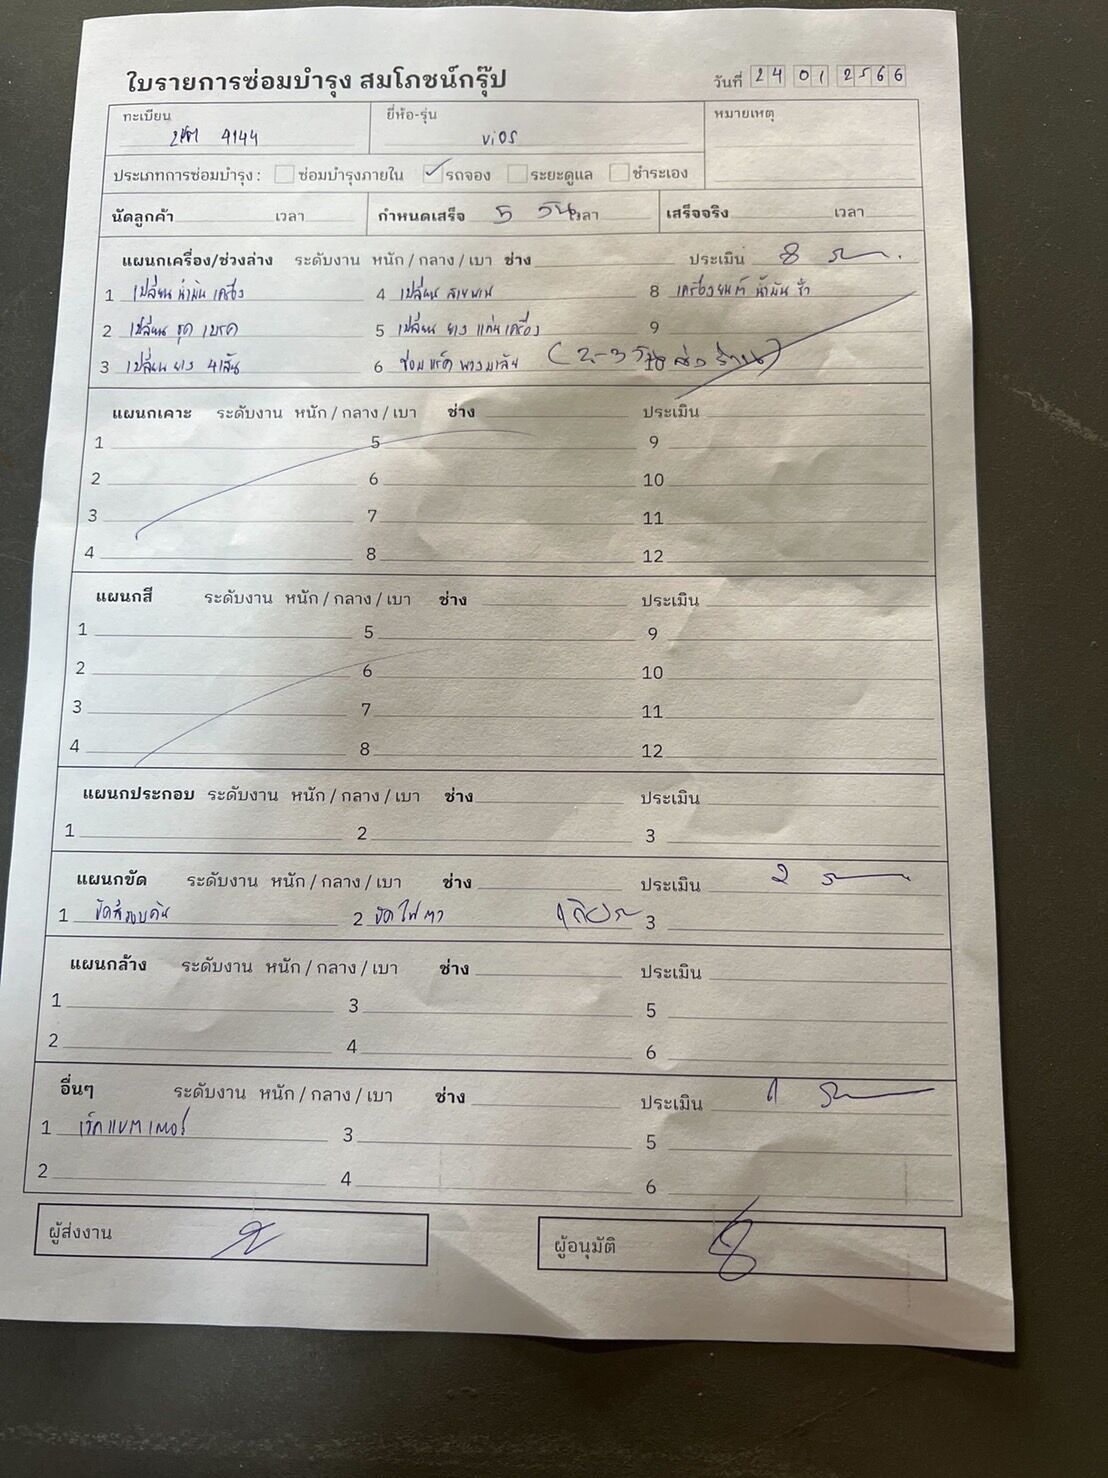 ใบรายการซ่อมบำรุง สมโภชน์กรุ๊ป วันที่ 24 01 2566
ทะเบียน 4144 ยี่ห้อ-รุ่น vios หมายเหตุ
ประเภทการซ่อมบำรุง : ซ่อมบำรุงภายใน รถจอง ระยะดูแล ชำระเอง
นัดลูกค้า เวลา กำหนดเสร็จ 5 วัน เวลา เสร็จจริง เวลา
แผนกเครื่อง/ช่วงล่าง ระดับงาน หนัก / กลาง / เบา ช่าง ประเมิน 8
1 เปลี่ยน น้ำมัน เครื่อง 4 เปลี่ยน สายพาน 8 เครื่องยนต์ น้ำมัน รั่ว
2 เปลี่ยน ชุด เบรค 5 เปลี่ยน ยาง แท่นเครื่อง 9
3 เปลี่ยน ยาง 4เส้น 6 ซ่อม แร็ค พวงมาลัย (2-3 วัน ส่ง ร้าน) 10
แผนกเคาะ ระดับงาน หนัก / กลาง / เบา ช่าง ประเมิน
1 5 9
2 6 10
3 7 11
4 8 12
แผนกสี ระดับงาน หนัก / กลาง / เบา ช่าง ประเมิน
1 5 9
2 6 10
3 7 11
4 8 12
แผนกประกอบ ระดับงาน หนัก / กลาง / เบา ช่าง ประเมิน
1 2 3
แผนกขัด ระดับงาน หนัก / กลาง / เบา ช่าง ประเมิน 2
1 ขัดสีรอบคัน 2 ขัด ไฟ ตา 3
แผนกล้าง ระดับงาน หนัก / กลาง / เบา ช่าง ประเมิน
1 3 5
2 4 6
อื่นๆ ระดับงาน หนัก / กลาง / เบา ช่าง ประเมิน 1
1 เช็คแบตเตอรี่ 3 5
2 4 6
ผู้ส่งงาน ผู้อนุมัติ